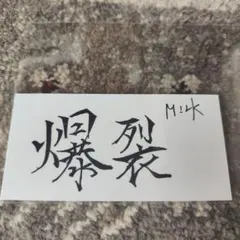 爆裂
M!LK